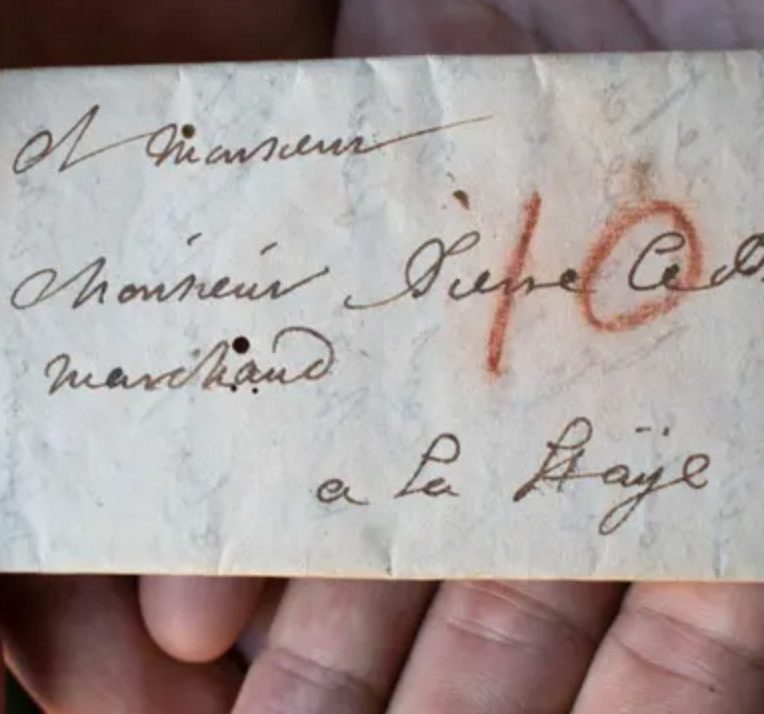 A Monsieur
10
Monsieur Pierre Le
marchand
a La Haÿe